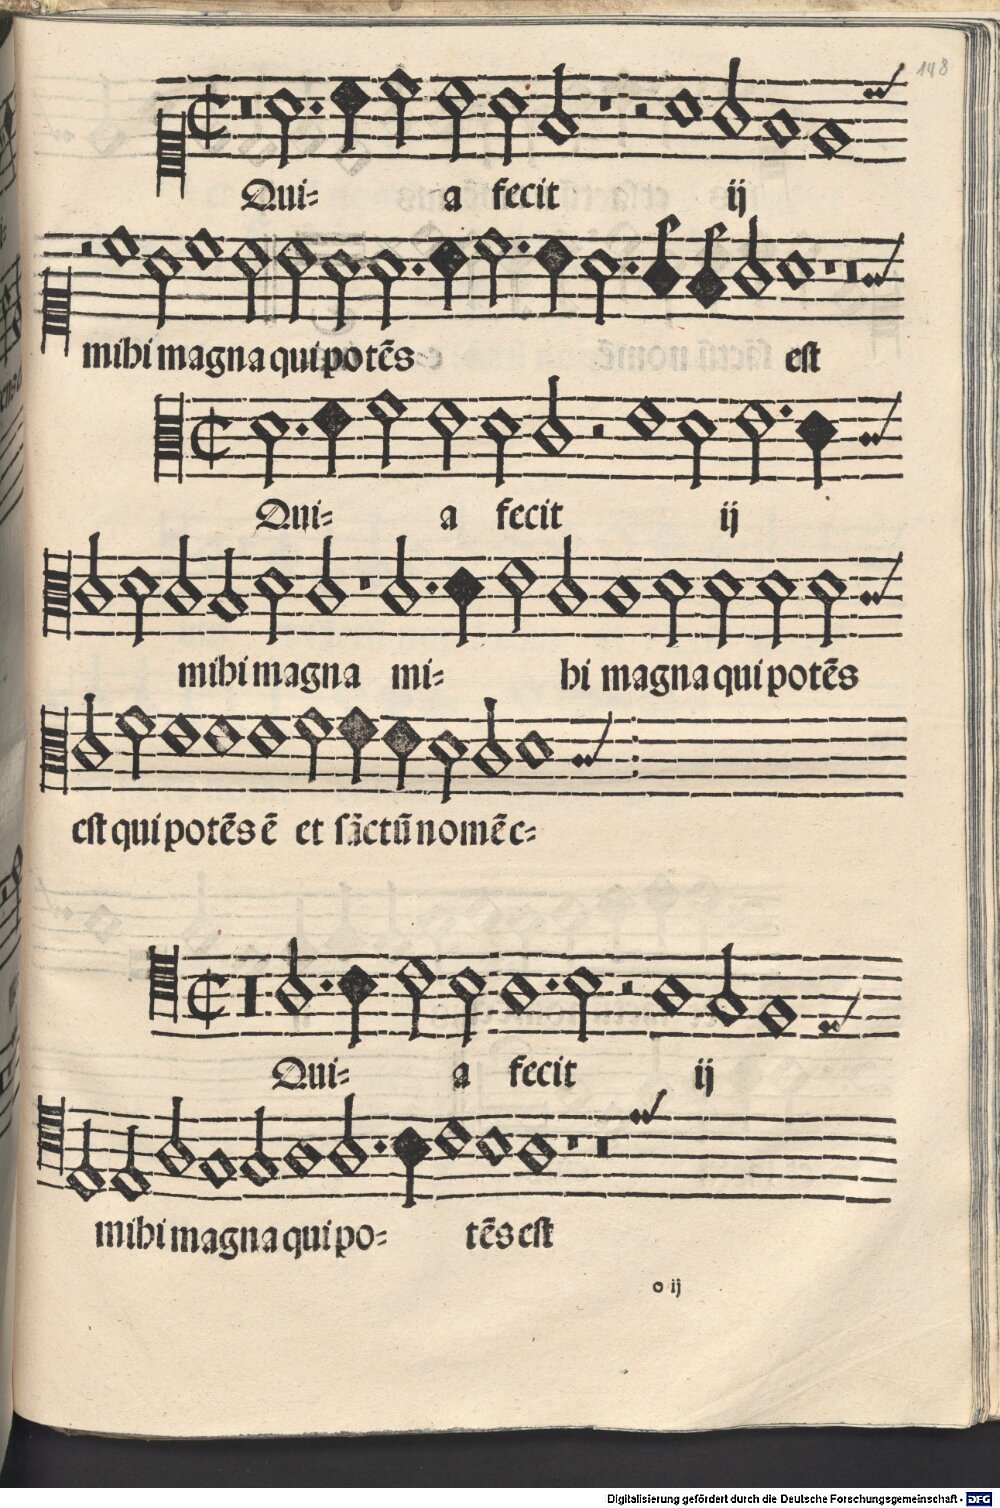 148
Qui- a fecit ij
mihi magna qui potēs est
Qui- a fecit ij
mihi magna mi- hi magna qui potēs
est qui potēs ē et sāctū nomē e-
Qui- a fecit ij
mihi magna qui po- tēs est
o ij
Digitalisierung gefördert durch die Deutsche Forschungsgemeinschaft - DFG